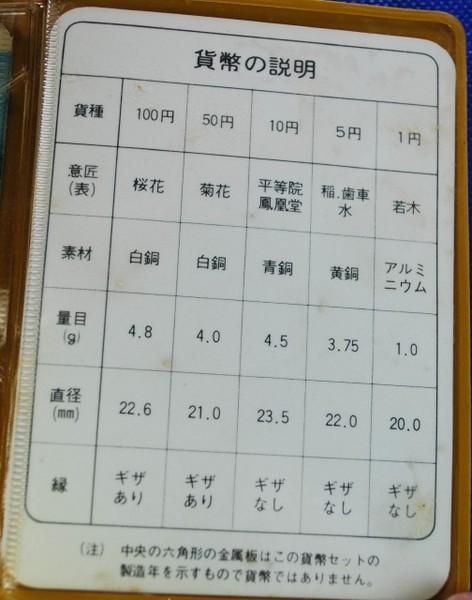 貨幣の説明
貨種 100円 50円 10円 5円 1円
意匠(表) 桜花 菊花 平等院鳳凰堂 稲.歯車水 若木
素材 白銅 白銅 青銅 黄銅 アルミニウム
量目(g) 4.8 4.0 4.5 3.75 1.0
直径(mm) 22.6 21.0 23.5 22.0 20.0
縁 ギザあり ギザあり ギザなし ギザなし ギザなし
(注) 中央の六角形の金属板はこの貨幣セットの
製造年を示すもので貨幣ではありません。